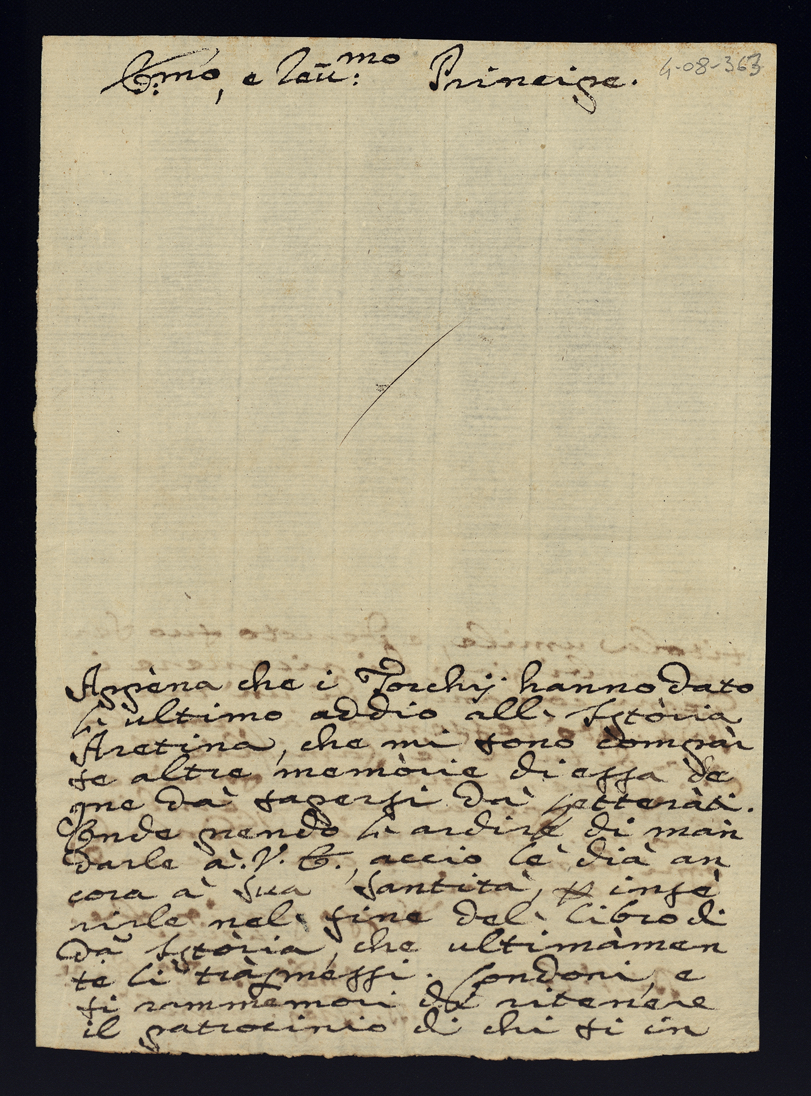 E.mo, e Rev.mo Principe.
4-08-363
Appena che i Torchij hanno dato
l'ultimo addio all'Istòria
Aretina, che mi sono compàr
se altre memòrie di essa de
gne dà sapersi dà Letterati.
Onde prendo l'ardire di màn
darle à V. E., acciò le dià an
cora à Sua Santità, p inse
rirle nel fine del libro di
dà Istòria, che ultimàmen
te li tràsmessi. Condoni, e
si rammemori di ritenere
il patrocinio di chi si in